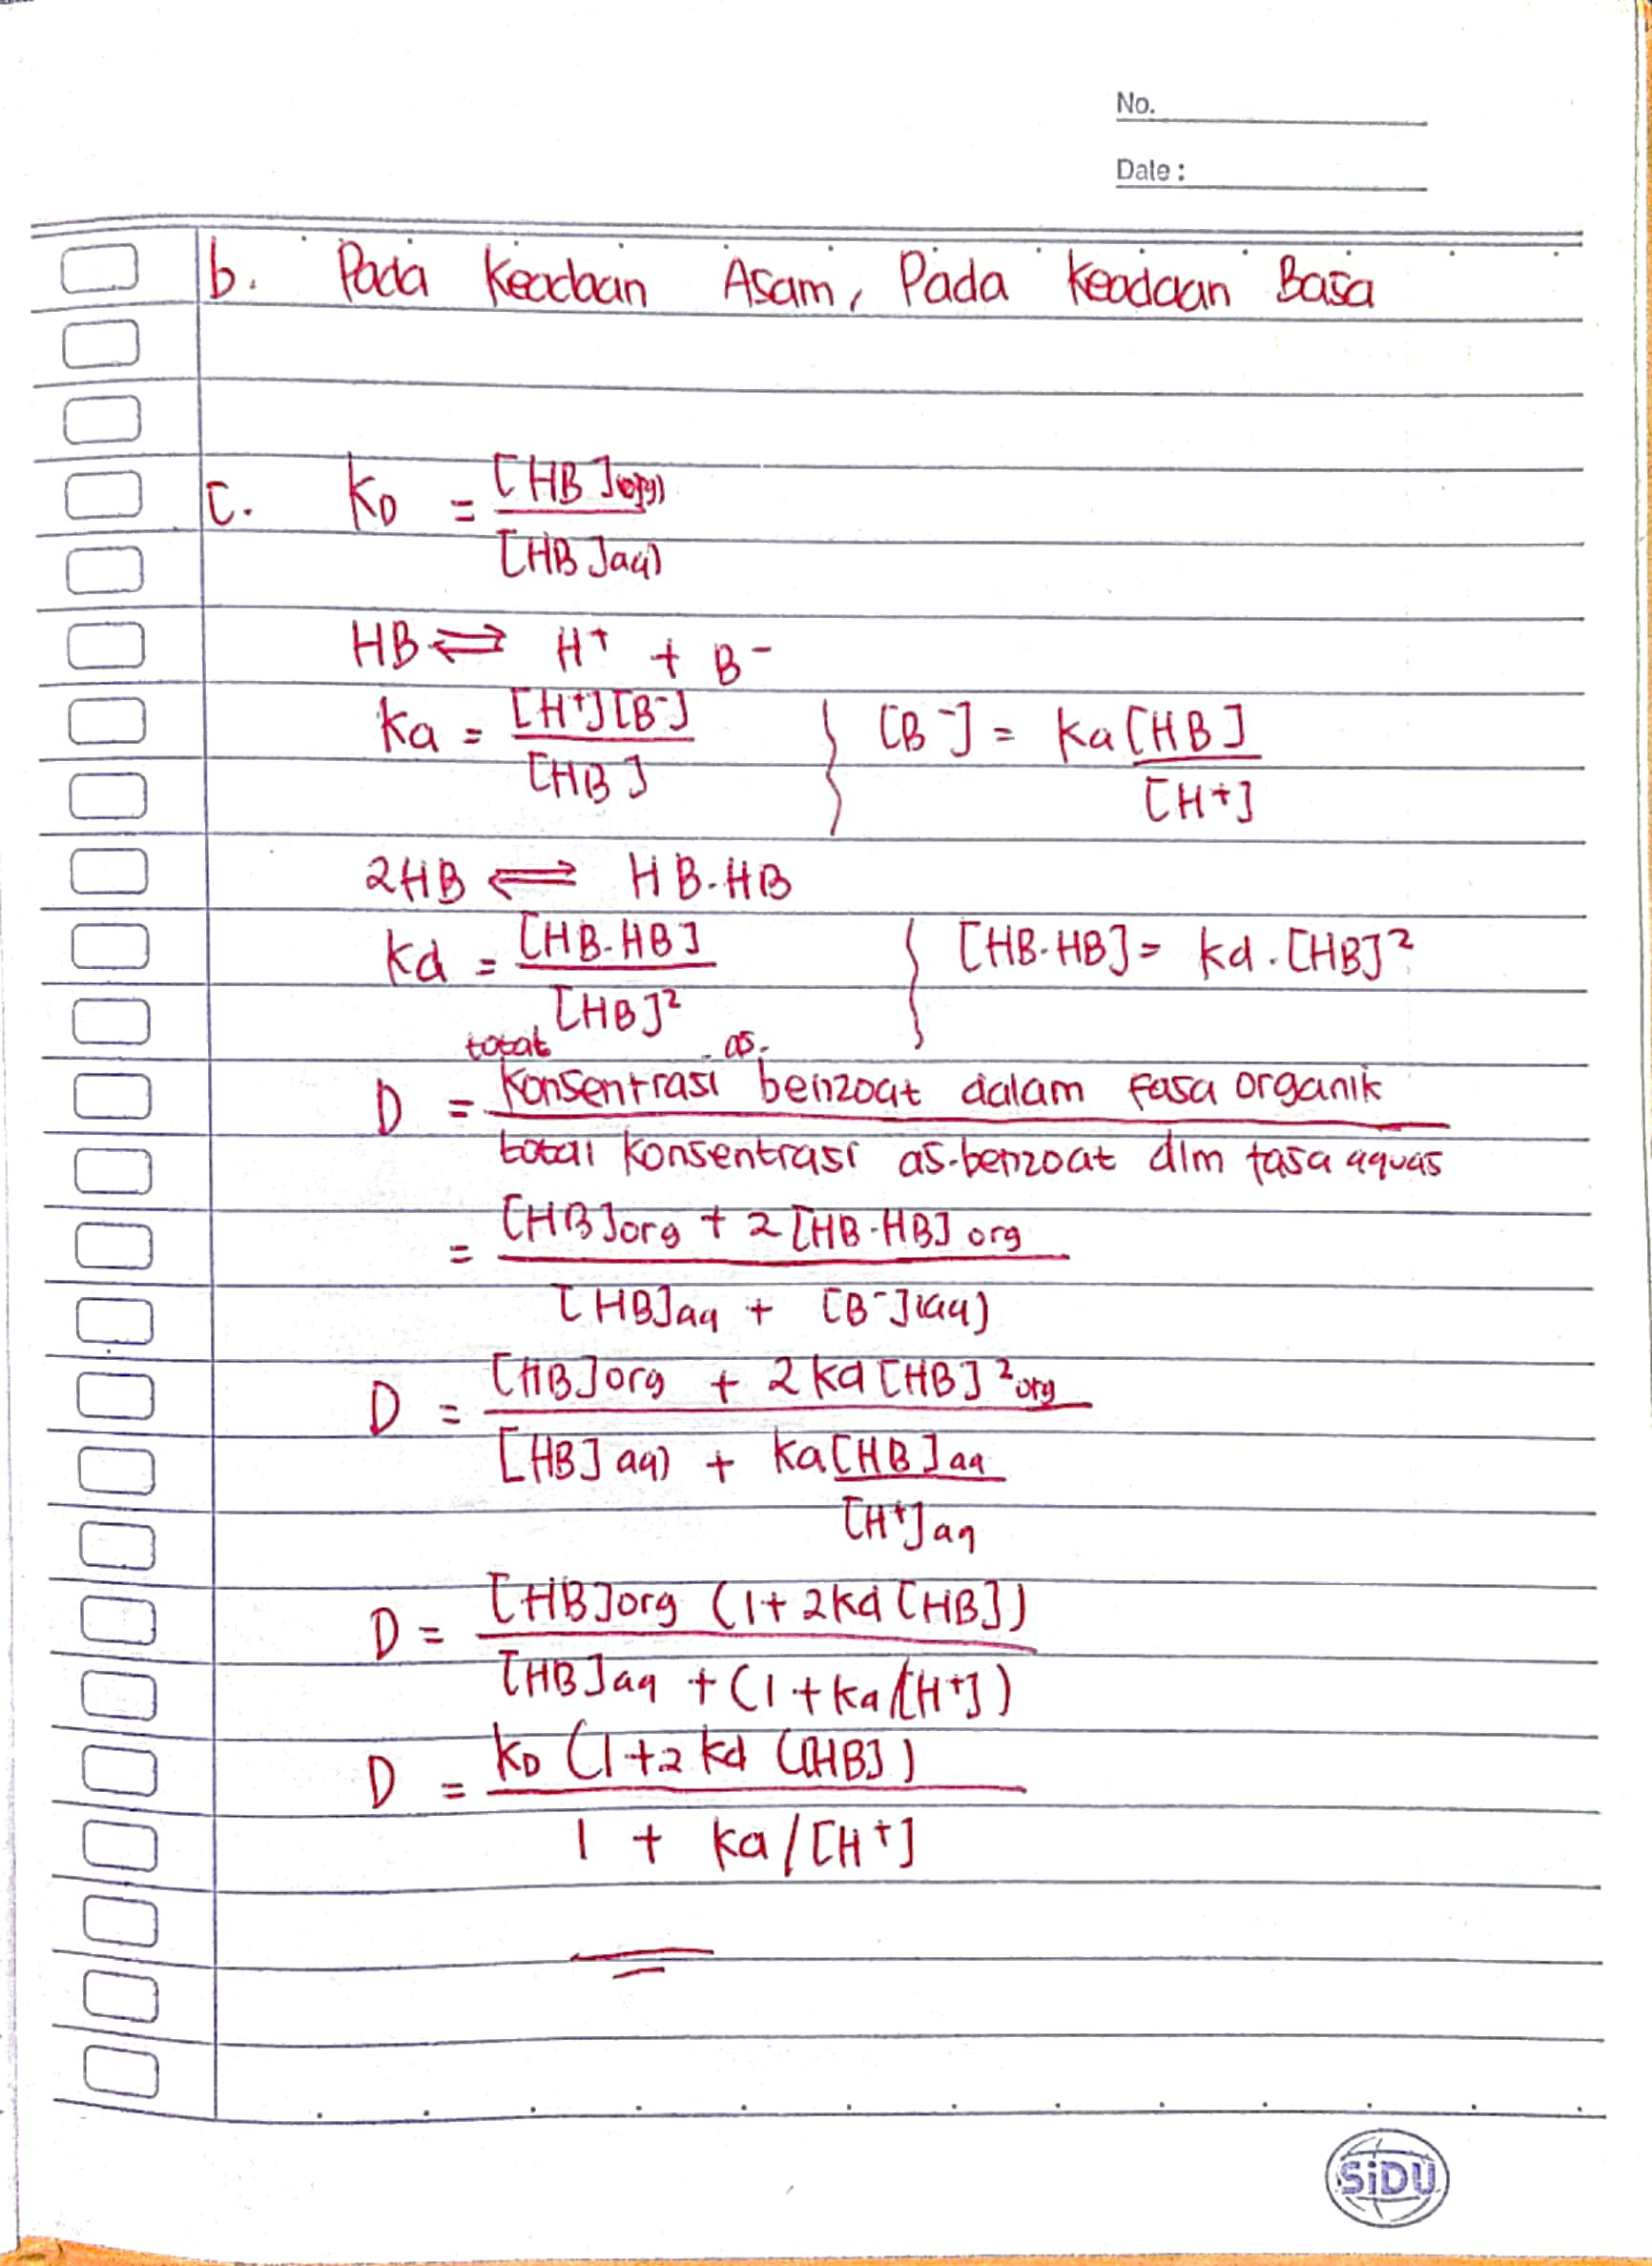 No.
Date :
b. Pada Keadaan Asam, Pada Keadaan Basa
c. KD = [HB](org) / [HB]aq)
HB ⇌ H+ + B-
Ka = [H+][B-] / [HB] } [B-] = Ka[HB] / [H+]
2HB ⇌ HB.HB
Kd = [HB-HB] / [HB]² { [HB.HB] = Kd.[HB]²
total as.
D = Konsentrasi benzoat dalam fasa organik
total Konsentrasi as-benzoat dlm fasa aquas
= [HB]org + 2[HB-HB]org
[HB]aq + [B-](aq)
D = [HB]org + 2Kd[HB]²org
[HB]aq) + Ka[HB]aq
[H+]aq
D = [HB]org (1+2Kd[HB])
[HB]aq + (1+Ka/[H+])
D = KD (1+2Kd ([HB])
1 + Ka/[H+]
SiDU